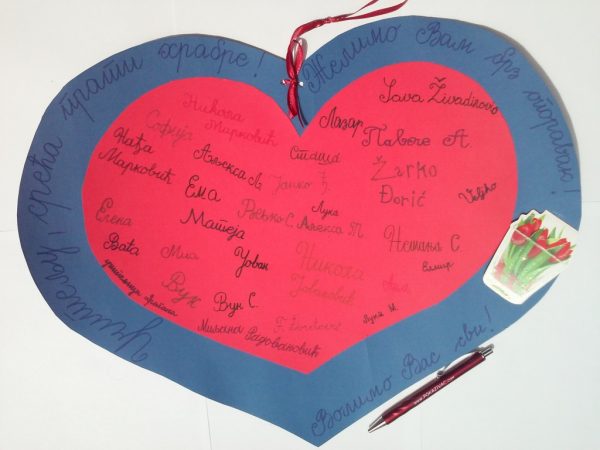 Учитељу, срећа прати храбре!
Желимо Вам брз опоравак!
Волимо Вас сви!
Никола
Марковић
Софија
Нађа
Марковић
Лазар
Sava Živadinović
Павле А.
Алекса А.
Сташа
Јанко Ђ.
Žarko
Đorić
Veljko
Ема
Елена
Матеја
Рељко С.
Лука
Алекса М.
Немања С.
Bata
Миа
Јован
Никола
Јовановић
Вук
Вук С.
Лука М.
Миљана Радовановић